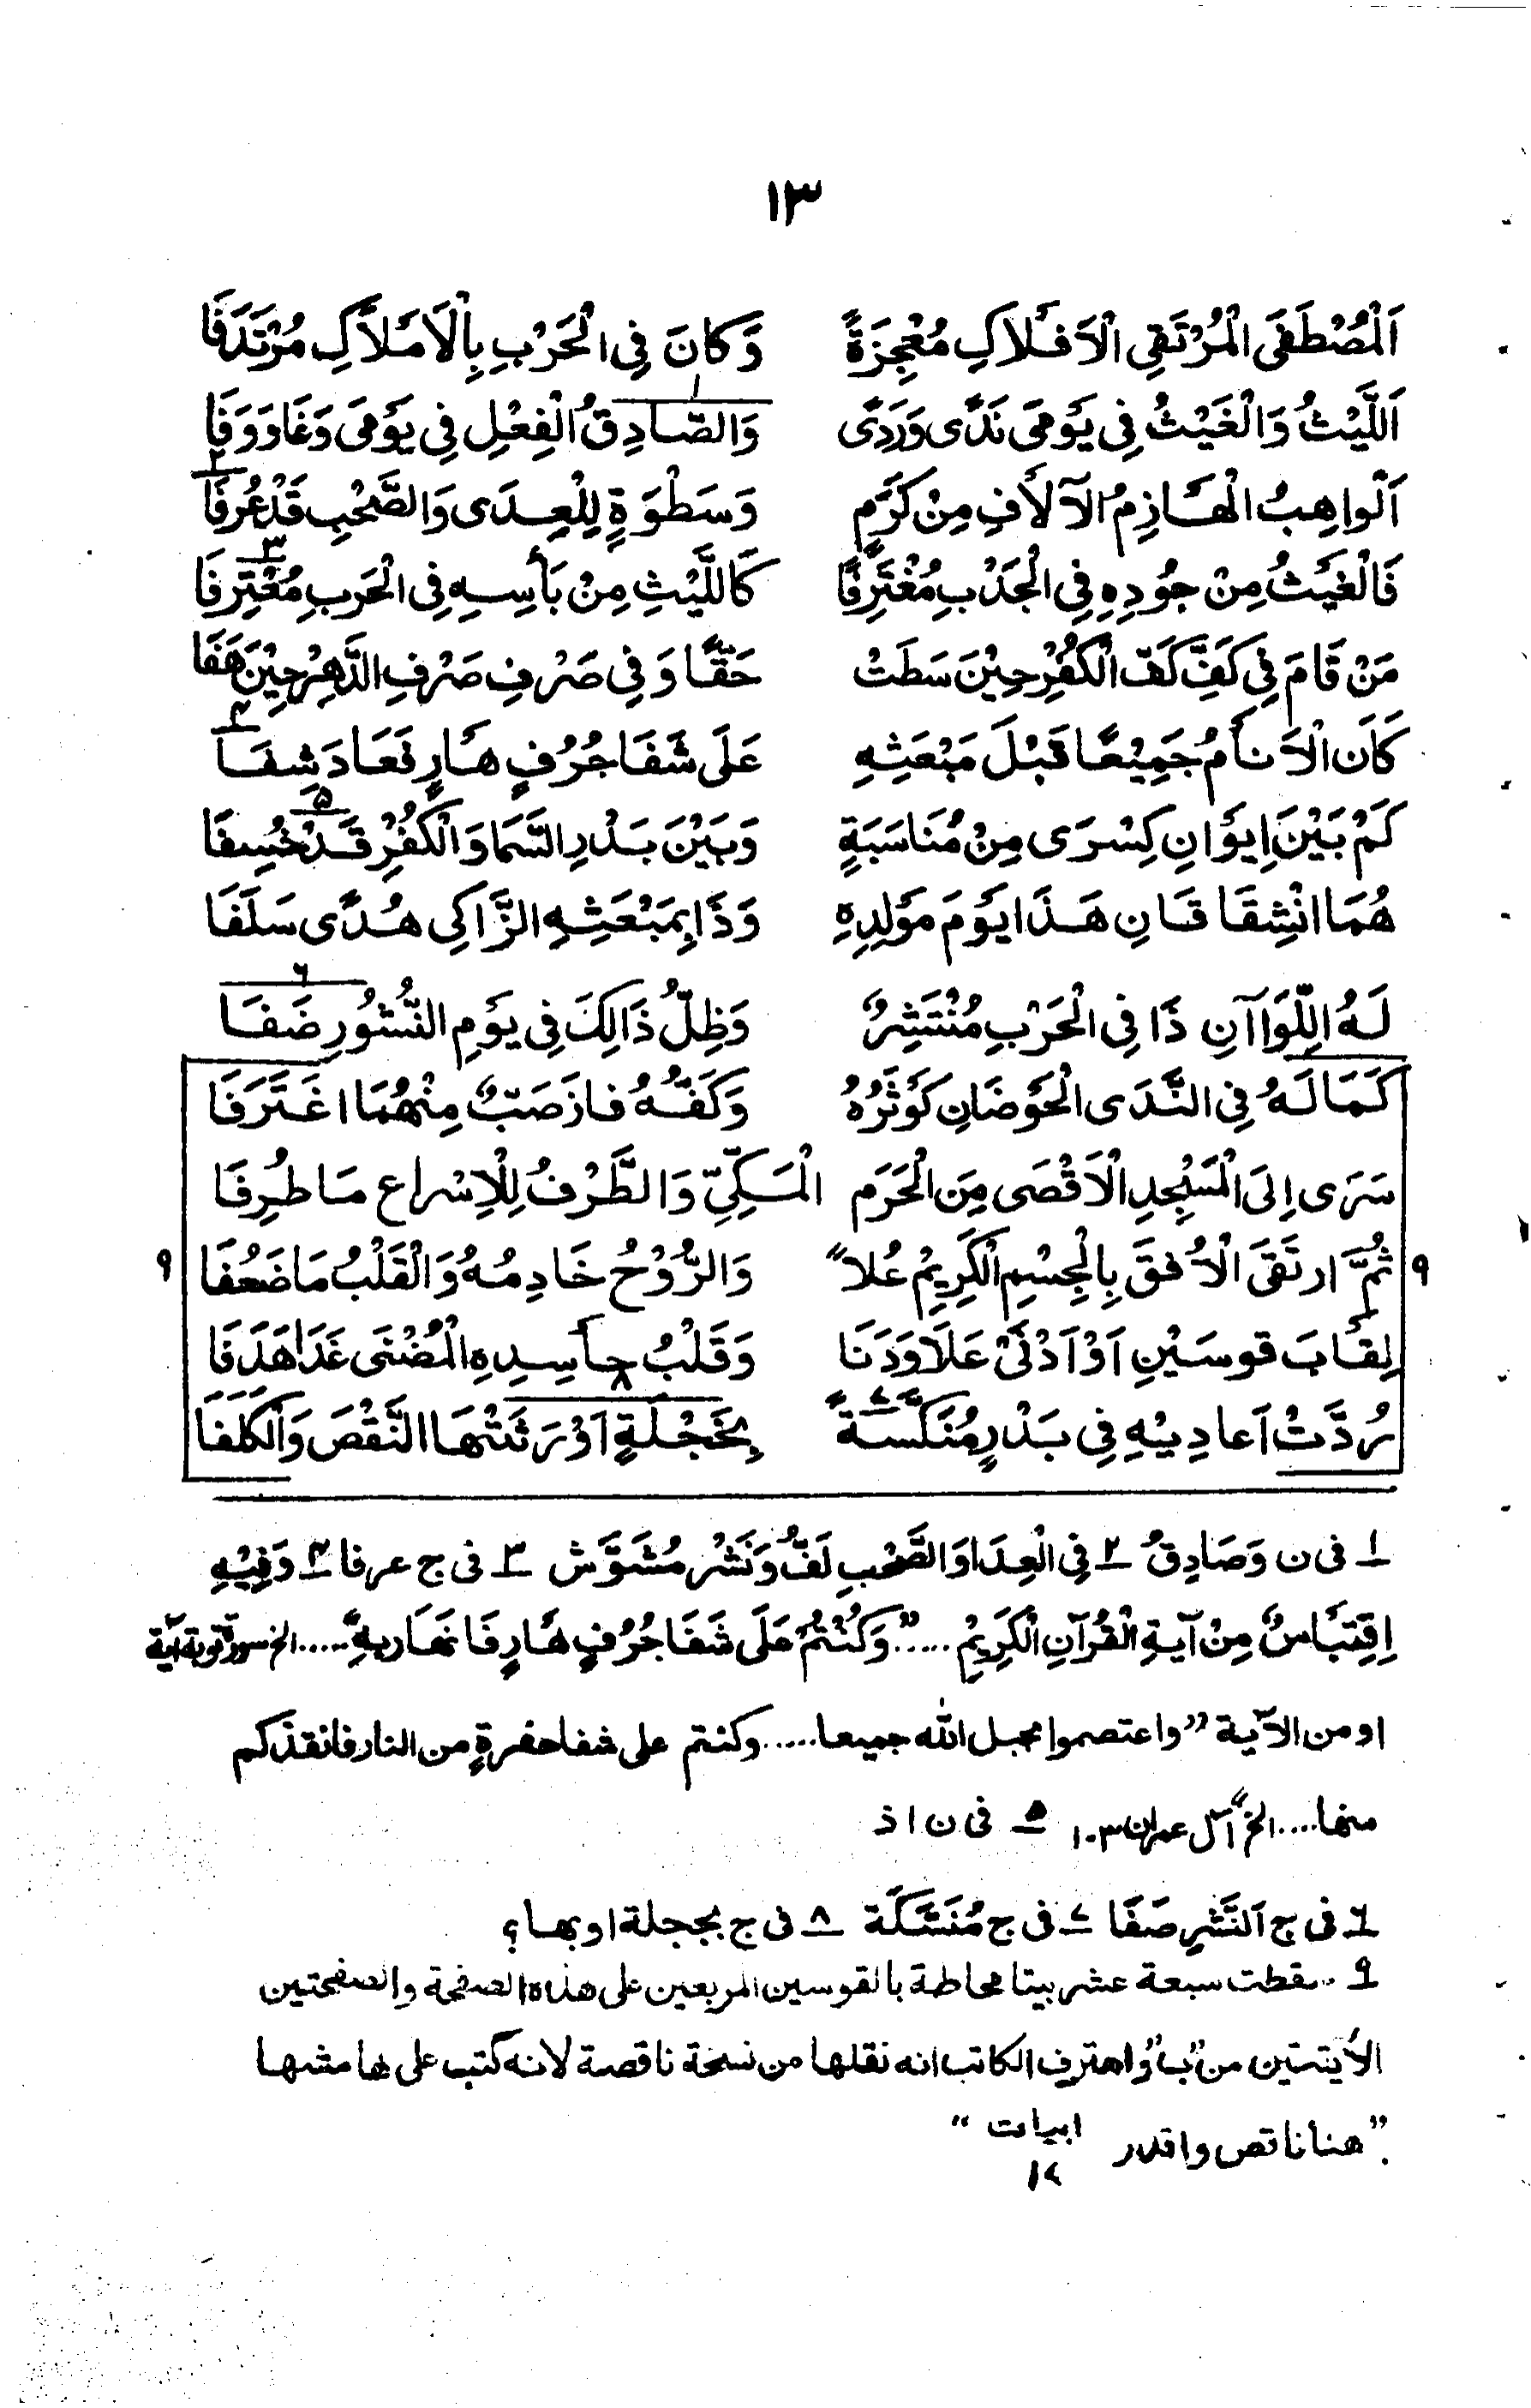 ١٣
اَلْمُصْطَفَى الْمُرْتَقِى الْاَفْلَاكِ مُعْجِزَةً وَكَانَ فِى الْحَرْبِ بِالْاَمْلَاكِ مُرْتَدَفَا
اَللَّيْثُ وَالْغَيْثُ فِى يَوْمَى نَدًى وَرَدًى وَالصَّادِقُ الْفِعْلِ فِى يَوْمَى وَغَا وَوَفَا ١
اَلْواهِبُ الْهَازِمُ الْآلَافِ مِنْ كَرَمٍ وَسَطْوَةٍ لِلْعِدَى وَالصَّحْبِ قَدْ عُرِفَا ٢
فَالْغَيْثُ مِنْ جُوْدِهِ فِى الْجَدْبِ مُغْتَرِفًا كَاللَّيْثِ مِنْ بَأْسِهِ فِى الْحَرَبِ مُغْتِرِفَا ٣
مَنْ قَامَ فِى كَفِّ كَفّ الْكُفْرِ حِيْنَ سَطَتْ حَقًّا وَفِى صَرْفِ صَرْفِ الدَّهْرِ حِيْنَ هَفَا
كَاَن الْاَنَامُ جَمِيْعًا قَبْلَ مَبْعَثِهِ عَلَى شَفَا جُرُفٍ هَارٍ فَعَادَ شِفَا ٤
كَمْ بَيْنَ اِيوَانِ كِسْرَى مِنْ مُنَاسَبَةٍ وَبَيْنَ بَدْرِ السَّمَا وَالْكُفْرِ قَدْ خُسِفَا ٥
هُمَا انْشِقَاقَانِ هَذَا يَوْمَ مَوْلِدِهِ وَذَا بِمَبْعَثِهِ الزَّاكِى هُدًى سَلَفَا
لَهُ اللِّوَاآنِ ذَا فِى الْحَرْبِ مُنْتَشِرٌ وَظِلُّ ذَالِكَ فِى يَوْمِ النُّشُوْرِ ضَفَا ٦
كَمَا لَهُ فِى النَّدَى الْحَوْضَانِ كَوْثَرُهُ وَكَفُّهُ فازَ صَبٌّ مِنْهُمَا اغْتَرَفَا
سَرَى اِلَى الْمَسْجِدِ الْاَقْصَى مِنَ الْحَرَم الْمَكِّيِّ وَالطَّرْفُ لِلْاِسْراع مَا طُرِفَا
٩ ثُمَّ ارتَقَى الْاُفقَ بِالْجِسْمِ الْكَرِيْمِ عُلاً وَالرُّوْحُ خَادِمُهُ وَالْقَلْبُ مَا ضَعُفَا ٩
لِقَابَ قوسَيْنِ اَوْ اَدْنَىْ عَلَا وَدَنَا وَقَلْبُ حاسِدِهِ الْمُضْنَى غَدَا هَدَفَا
رُدَّتْ اَعادِيْهِ فِى بَدْرٍ مُنَكَّسَةً ٧ بِخَجْلَةٍ اَوْرَثَتْهَا النَّقْصَ وَالْكَلَفَا ٨
١ فى ن وَصَادِقُ ٢ فِى الْعِدَا وَالصَّحْبِ لَفٌّ وَنَشْر مُشَوَّش ٣ فى ج عرفا ٤ وَفِيْهِ
اِقتِبَاسٌ مِنْ آيةِ الْقُرآنِ الْكَرِيْمِ ..... ”وَكُنْتُمْ عَلَى شَفَا جُرُفٍ هَارٍ فَانْهَارَ بِهِ ..... الخ سورة توبة آية
او من الآية ”واعتصموا بحبل الله جميعا ..... وكنتم على شفا حفرةٍ من النار فانقذكم
منها .... الخ آل عمران ١٠٣ ٥ فى ن اذ
٦ فى ج اَلنَّشْرِ صَفَا ٧ فى ج مُنَشَّكَة ٨ فى ج بججلة او بها؟
٩ سقطت سبعة عشر بيتا محاطة بالقوسين المربعين على هذه الصفحة والصفحتين
الأيتتين من ”ب“ واعترف الكاتب انه نقلها من نسخة ناقصة لانه كتب على هامشها
”هنا ناقص واقدر ابيات“
١٧